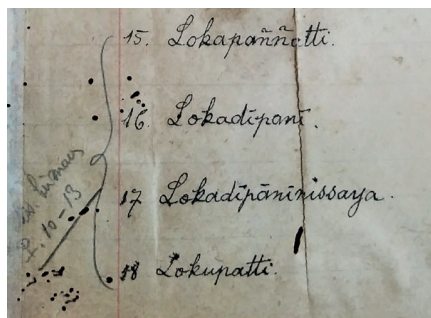 15. Lokapaññatti.
16. Lokadīpanī.
17 Lokadīpanīnissaya.
18 Lokupatti.
10-13